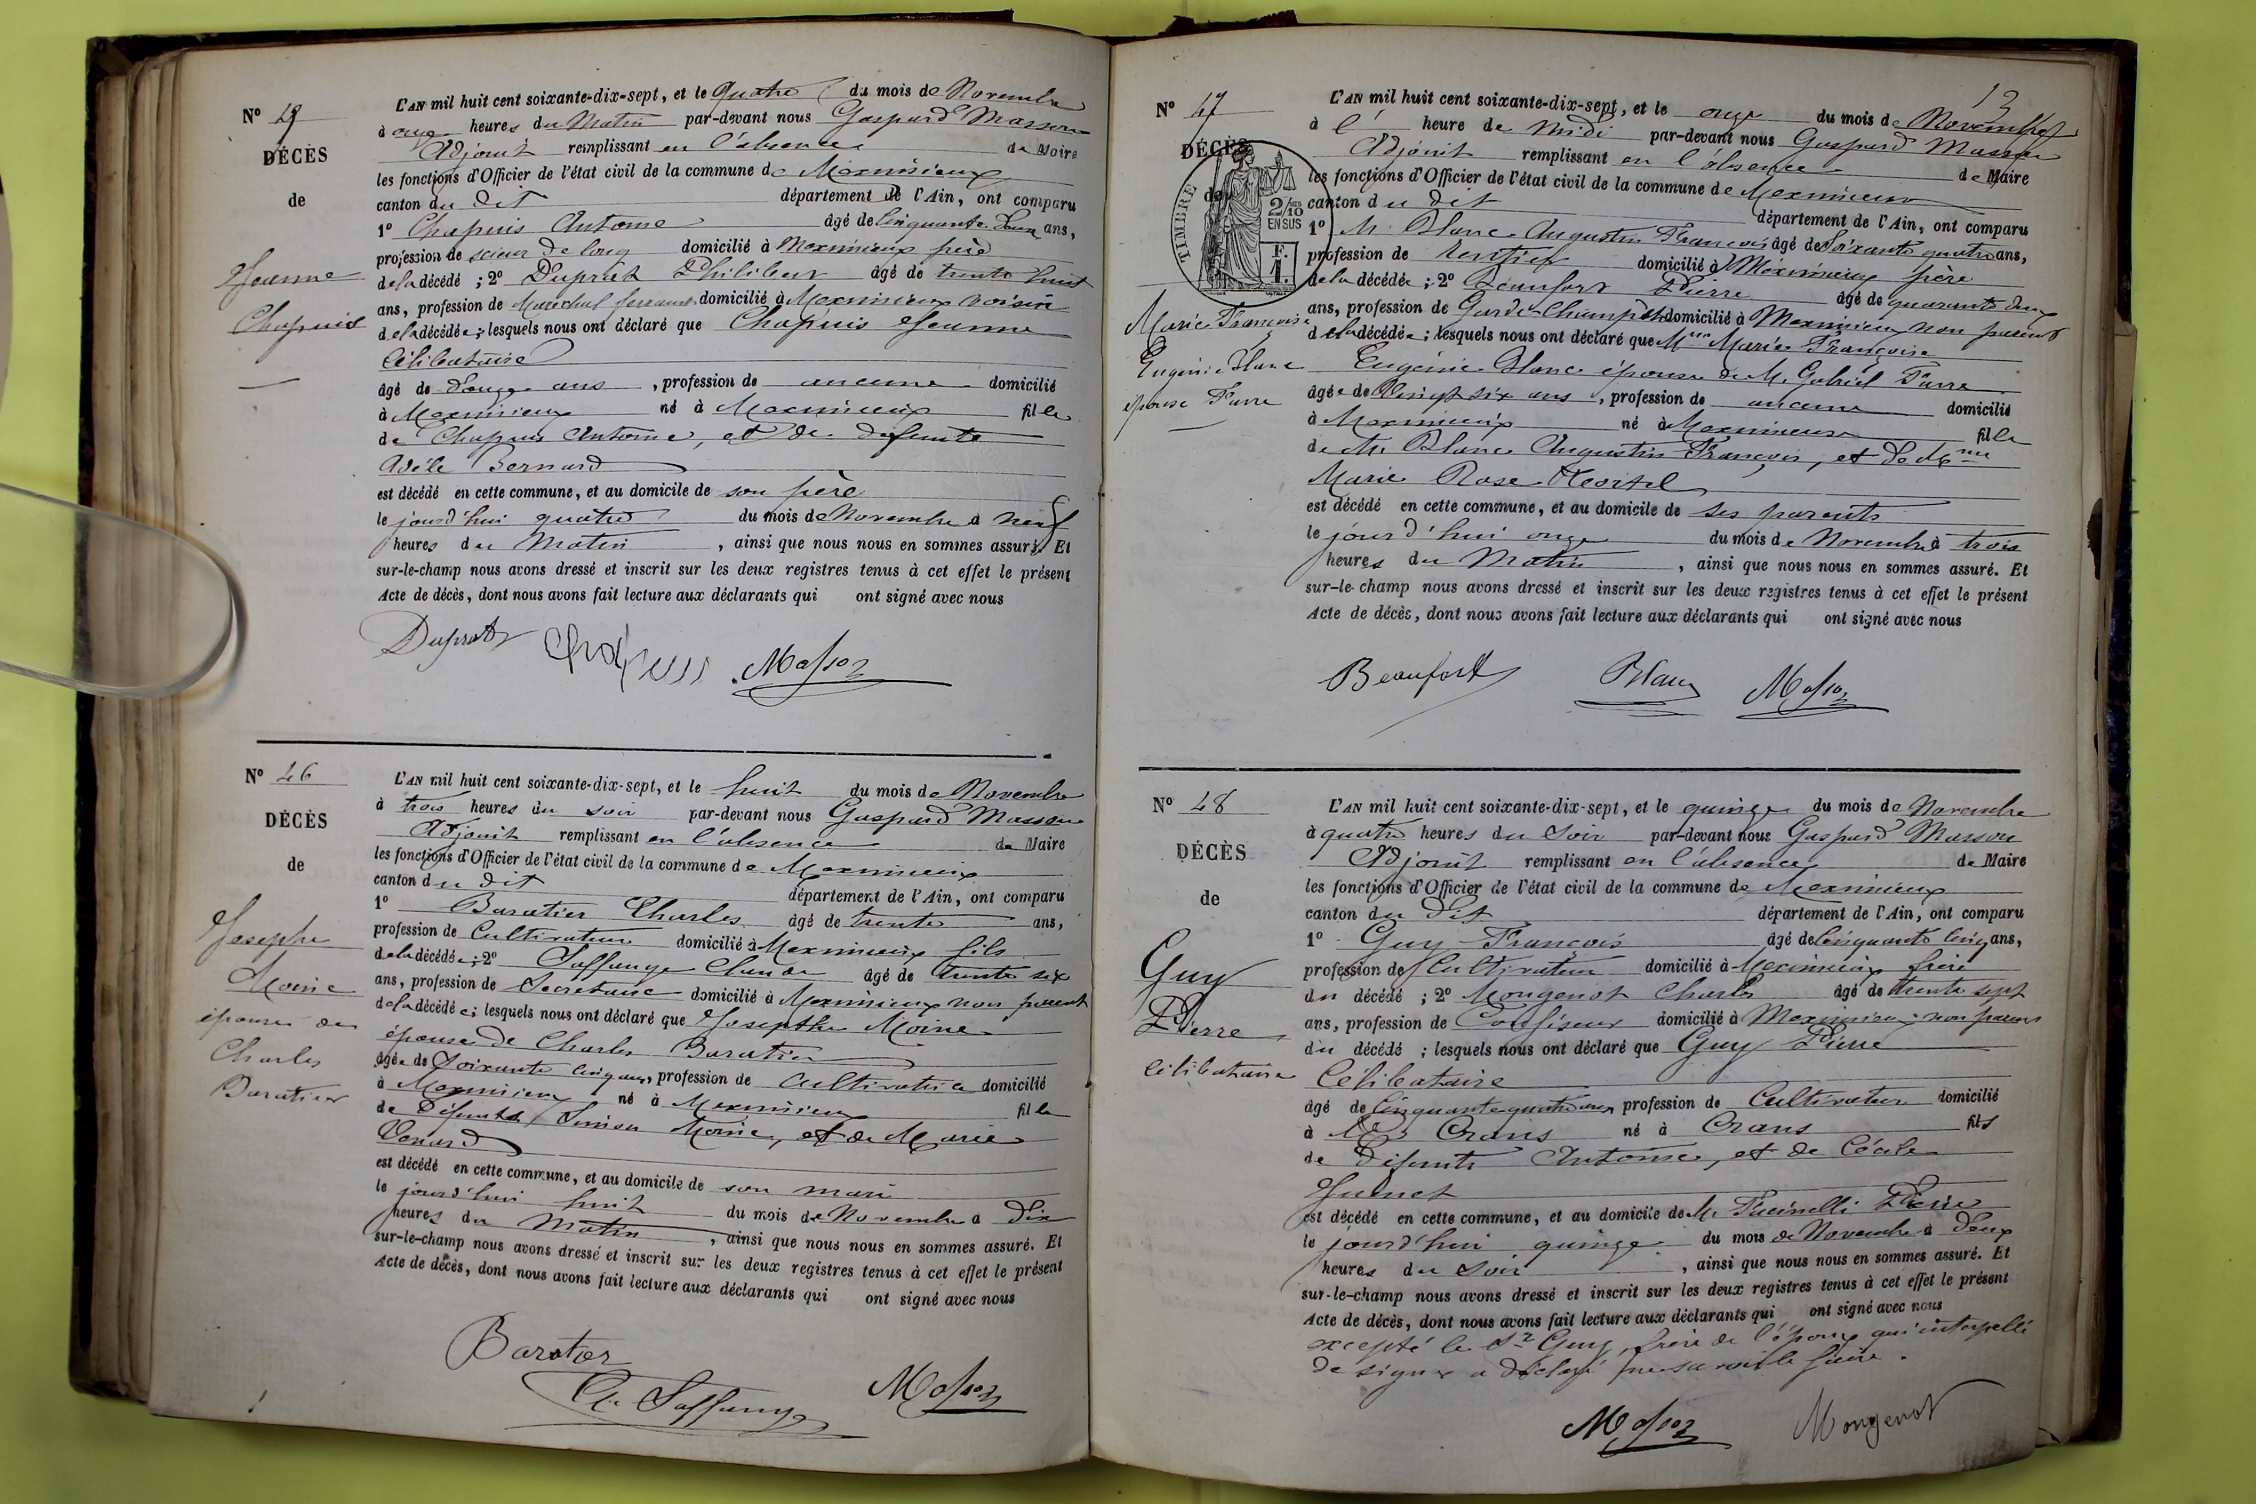 L'AN mil huit cent soixante-dix-sept, et le Quatre du mois de Novembre
à onze heures du Matin par-devant nous Gaspard Masson
Adjoint remplissant en l'absence de Maire
les fonctions d'Officier de l'état civil de la commune de Meximieux
canton du dit département de l'Ain, ont comparu
1° Chapuis Antoine âgé de Cinquante deux ans,
profession de scieur de long domicilié à Meximieux père
de la décédé ; 2° Duprat Philibert âgé de trente huit
ans, profession de Maréchal ferrant domicilié à Meximieux voisin
de la décédée ; lesquels nous ont déclaré que Chapuis Jeanne
Célibataire
âgé de douze ans, profession de aucune domicilié
à Meximieux né à Meximieux fille
de Chapuis Antoine, et de défunte
Adèle Bernard
est décédé en cette commune, et au domicile de son père
le jourd'hui quatre du mois de Novembre à neuf
heures du Matin, ainsi que nous nous en sommes assuré. Et
sur-le-champ nous avons dressé et inscrit sur les deux registres tenus à cet effet le présent
Acte de décès, dont nous avons fait lecture aux déclarants qui ont signé avec nous
N°
DÉCÈS
de
Jeanne
Chapuis
Duprat Chapuis Masson
N° 46
DÉCÈS
de
Josephe
Moine
épouse de
Charles
Baratier
L'AN mil huit cent soixante-dix-sept, et le huit du mois de Novembre
à trois heures du soir par-devant nous Gaspard Masson
Adjoint remplissant en l'absence de Maire
les fonctions d'Officier de l'état civil de la commune de Meximieux
canton du dit département de l'Ain, ont comparu
1° Baratier Charles âgé de trente ans,
profession de Cultivateur domicilié à Meximieux fils
de la décédée ; 2° Laffange Claude âgé de trente six
ans, profession de Secrétaire domicilié à Meximieux non parent
de la décédée ; lesquels nous ont déclaré que Josephe Moine
épouse de Charles Baratier
âgée de Soixante cinq ans, profession de Cultivatrice domicilié
à Meximieux né à Meximieux fille
de Défunt Moine, et de Marie
est décédé en cette commune, et au domicile de son mari
le jourd'hui huit du mois de Novembre à Dix
heures du Matin, ainsi que nous nous en sommes assuré. Et
sur-le-champ nous avons dressé et inscrit sur les deux registres tenus à cet effet le présent
Acte de décès, dont nous avons fait lecture aux déclarants qui ont signé avec nous
Baratier
Cl. Laffange Masson
13
N° 47
DÉCÈS
de
TIMBRE
2/10
EN SUS
F.
1.
Marie Françoise
Eugénie Blanc
épouse Favre
L'AN mil huit cent soixante-dix-sept, et le onze du mois de Novembre
à l' heure de Midi par-devant nous Gaspard Masson
Adjoint remplissant en l'absence de Maire
les fonctions d'Officier de l'état civil de la commune de Meximieux
canton du dit département de l'Ain, ont comparu
1° M. Blanc Augustin François âgé de Soixante quatre ans,
profession de Rentier domicilié à Meximieux père
de la décédée ; 2° Beaufort Pierre âgé de quarante deux
ans, profession de Garde Champêtre domicilié à Meximieux non parent
de la décédée ; lesquels nous ont déclaré que Mme Marie Françoise
Eugénie Blanc épouse de M. Gabriel Favre
âgée de Vingt six ans, profession de aucune domicilié
à Meximieux né à Meximieux fille
de M. Blanc Augustin François, et de Mme
Marie Rose
est décédé en cette commune, et au domicile de ses parents
le jourd'hui onze du mois de Novembre à trois
heures du Matin, ainsi que nous nous en sommes assuré. Et
sur-le-champ nous avons dressé et inscrit sur les deux registres tenus à cet effet le présent
Acte de décès, dont nous avons fait lecture aux déclarants qui ont signé avec nous
Beaufort Blanc Masson
N° 48
DÉCÈS
de
Guy
Pierre
Célibataire
L'AN mil huit cent soixante-dix-sept, et le quinze du mois de Novembre
à quatre heures du Soir par-devant nous Gaspard Masson
Adjoint remplissant en l'absence de Maire
les fonctions d'Officier de l'état civil de la commune de Meximieux
canton du dit département de l'Ain, ont comparu
1° Guy François âgé de Cinquante cinq ans,
profession de Cultivateur domicilié à Meximieux frère
du décédé ; 2° Mongenot Charles âgé de trente sept
ans, profession de Confiseur domicilié à Meximieux non parent
du décédé ; lesquels nous ont déclaré que Guy Pierre
Célibataire
âgé de Cinquante quatre ans, profession de Cultivateur domicilié
à Crans né à Crans fils
de Défunts Antoine, et de Cécile
Junet
est décédé en cette commune, et au domicile de M. Pierre
le jourd'hui quinze du mois de Novembre à deux
heures du Soir, ainsi que nous nous en sommes assuré. Et
sur-le-champ nous avons dressé et inscrit sur les deux registres tenus à cet effet le présent
Acte de décès, dont nous avons fait lecture aux déclarants qui ont signé avec nous
excepté le Sr Guy, frère de l'époux qui interpellé
de signer a déclaré ne savoir le faire.
Masson Mongenot